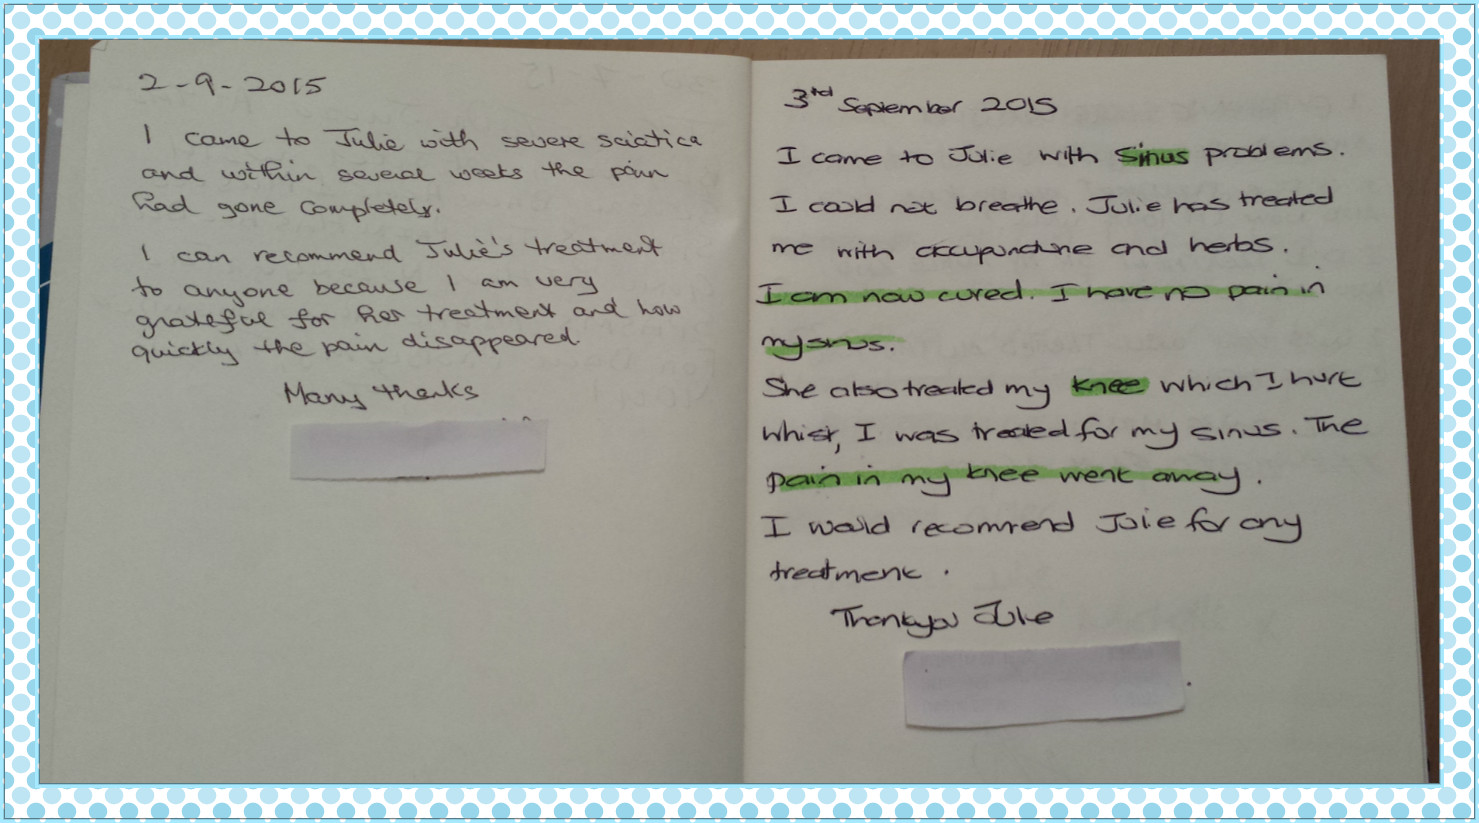 2-9-2015
I came to Julie with severe sciatica
and within several weeks the pain
had gone completely.
I can recommend Julie's treatment
to anyone because I am very
grateful for her treatment and how
quickly the pain disappeared.
Many thanks
3rd September 2015
I came to Julie with sinus problems.
I could not breathe. Julie has treated
me with accupuncture and herbs.
I am now cured. I have no pain in
my sinus.
She also treated my knee which I hurt
whist, I was treated for my sinus. The
pain in my knee went away.
I would recommend Julie for any
treatment.
Thankyou Julie